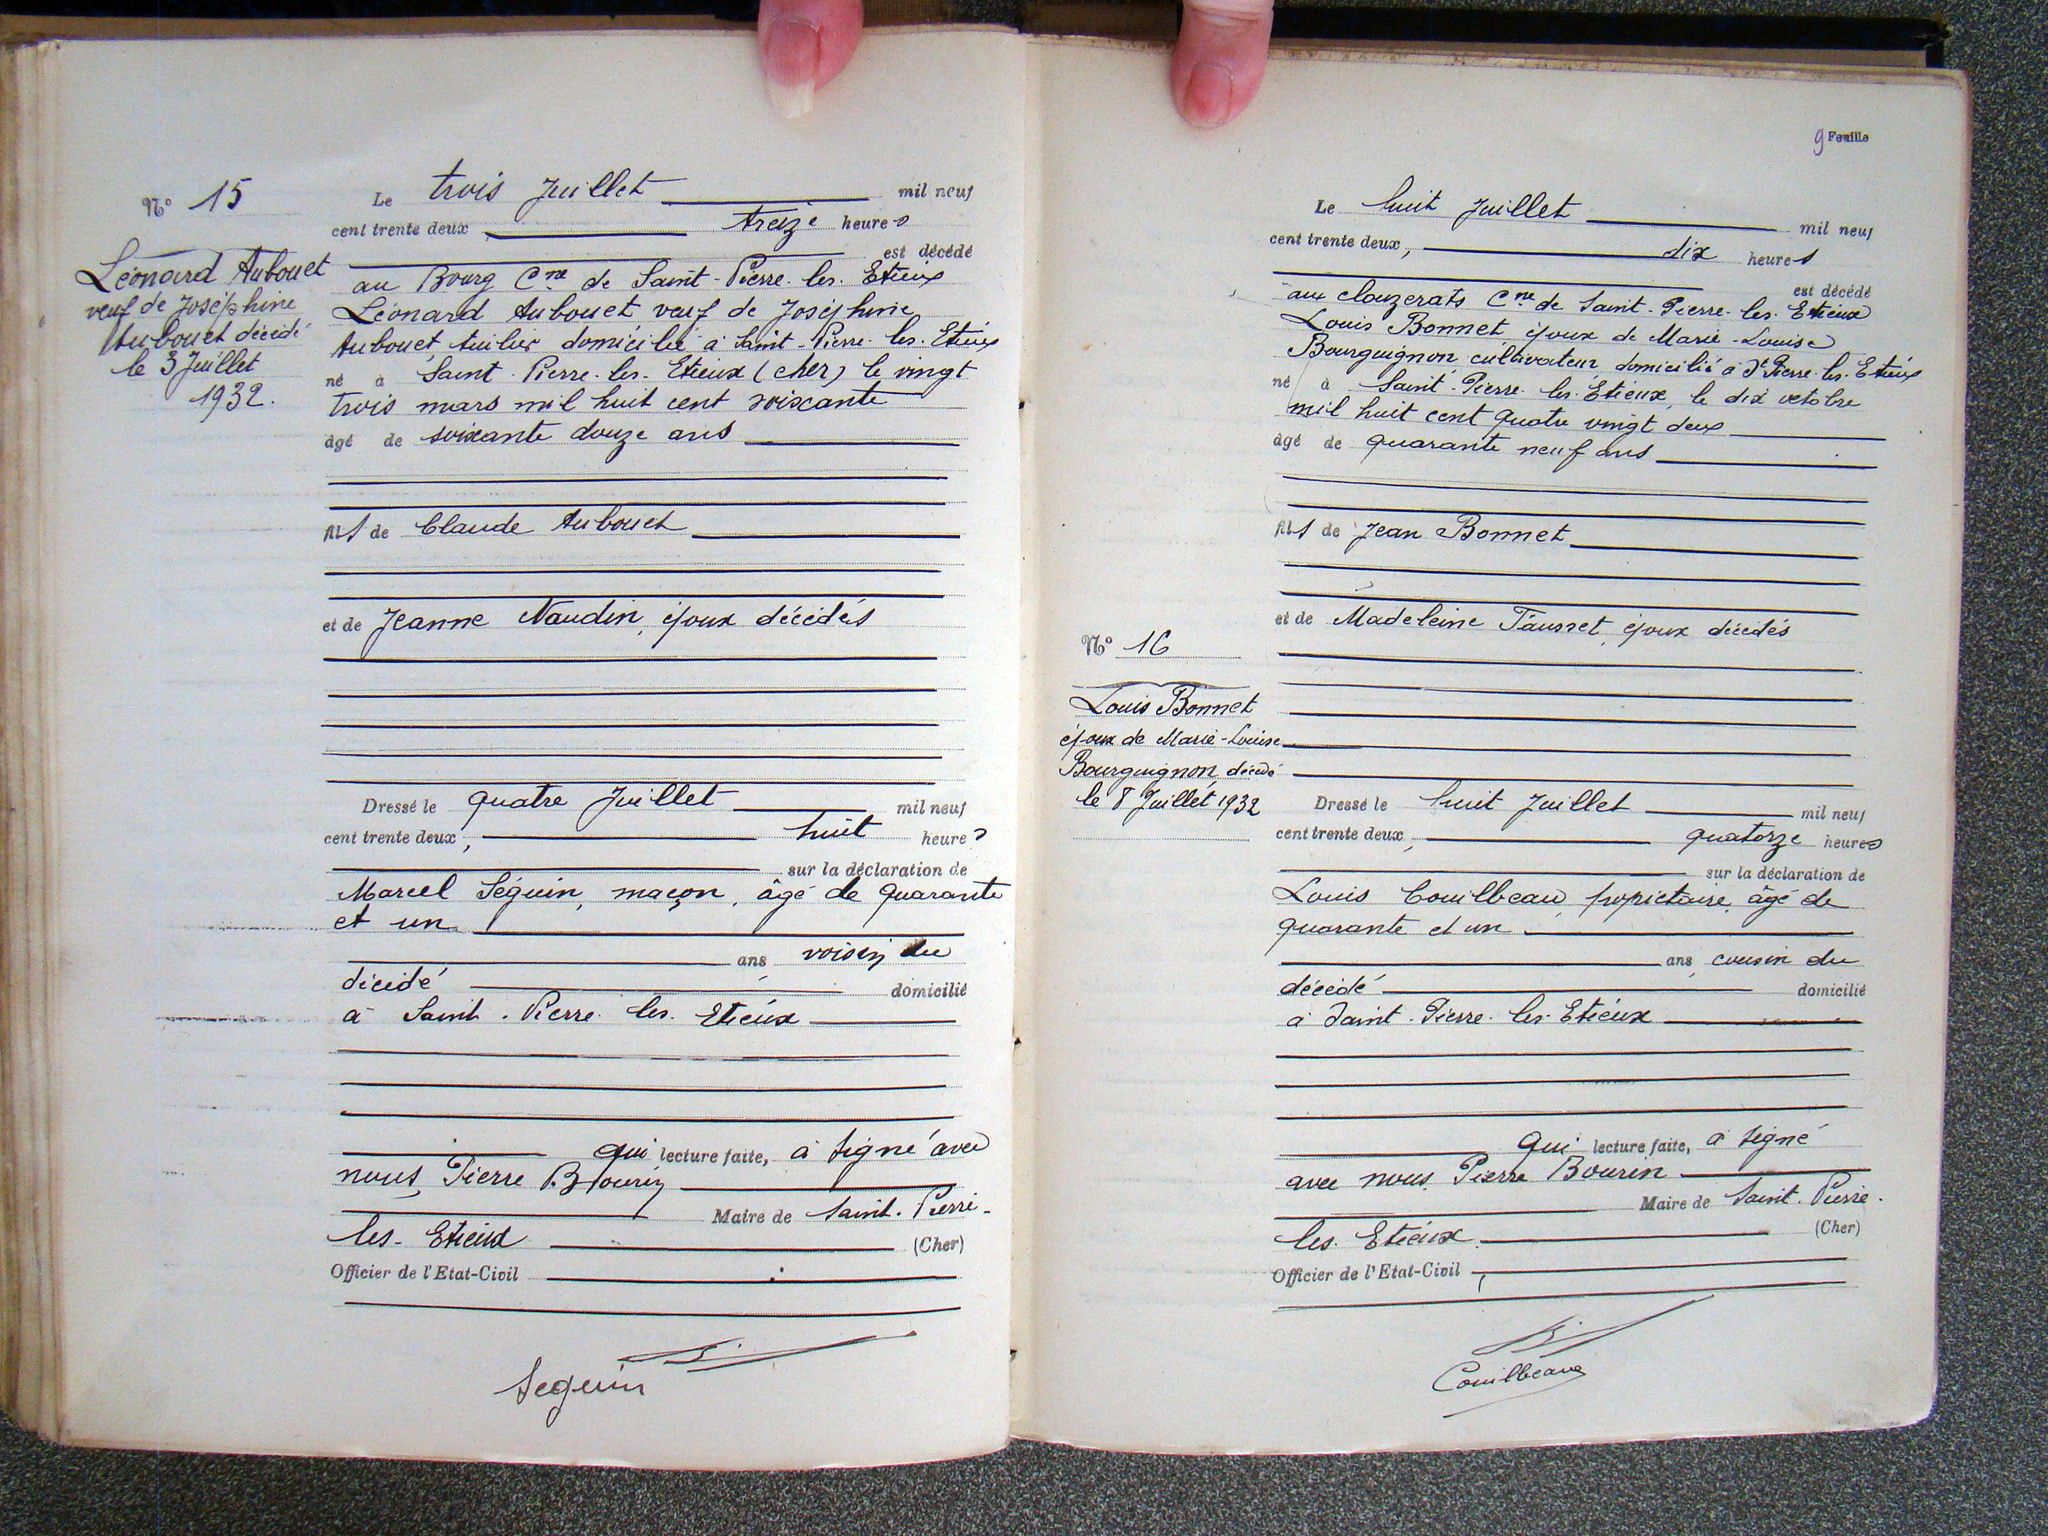 N° 15
Léonard Aubouet
veuf de Joséphine
Aubouet décédé
le 3 Juillet
1932.
Le trois Juillet mil neuf
cent trente deux, treize heures
est décédé
au Bourg Cne de Saint-Pierre-les-Etieux
Léonard Aubouet veuf de Joséphine
Aubouet tuilier domicilié à Saint-Pierre-les-Etieux
né à Saint-Pierre-les-Etieux (cher) le vingt
trois mars mil huit cent soixante
âgé de soixante douze ans
fils de Claude Aubouet
et de Jeanne Naudin, époux décédés
Dressé le quatre Juillet mil neuf
cent trente deux, huit heures
sur la déclaration de
Marcel Séguin, maçon, âgé de quarante
et un
ans voisin du
décédé domicilié
à Saint-Pierre-les-Etieux
qui lecture faite, à signé avec
nous, Pierre Bourin
Maire de Saint-Pierre-
les-Etieux (Cher)
Officier de l'Etat-Civil
Seguin
9 Feuille
Le huit Juillet mil neuf
cent trente deux, dix heures
est décédé
aux clouzerats Cne de Saint-Pierre-les-Etieux
Louis Bonnet époux de Marie-Louise
Bourguignon cultivateur domicilié à St Pierre-les-Etieux
né à Saint-Pierre-les-Etieux, le dix octobre
mil huit cent quatre vingt deux
âgé de quarante neuf ans
fils de Jean Bonnet
et de Madeleine époux décédés
N° 16
Louis Bonnet
époux de Marie-Louise
Bourguignon, décédé
le 8 Juillet 1932
Dressé le huit Juillet mil neuf
cent trente deux, quatorze heures
sur la déclaration de
Louis Couilbeau, propriétaire, âgé de
quarante et un
ans, cousin du
décédé domicilié
à Saint-Pierre-les-Etieux
qui lecture faite, à signé
avec nous Pierre Bourin
Maire de Saint-Pierre-
les-Etieux (Cher)
Officier de l'Etat-Civil,
Couilbeau